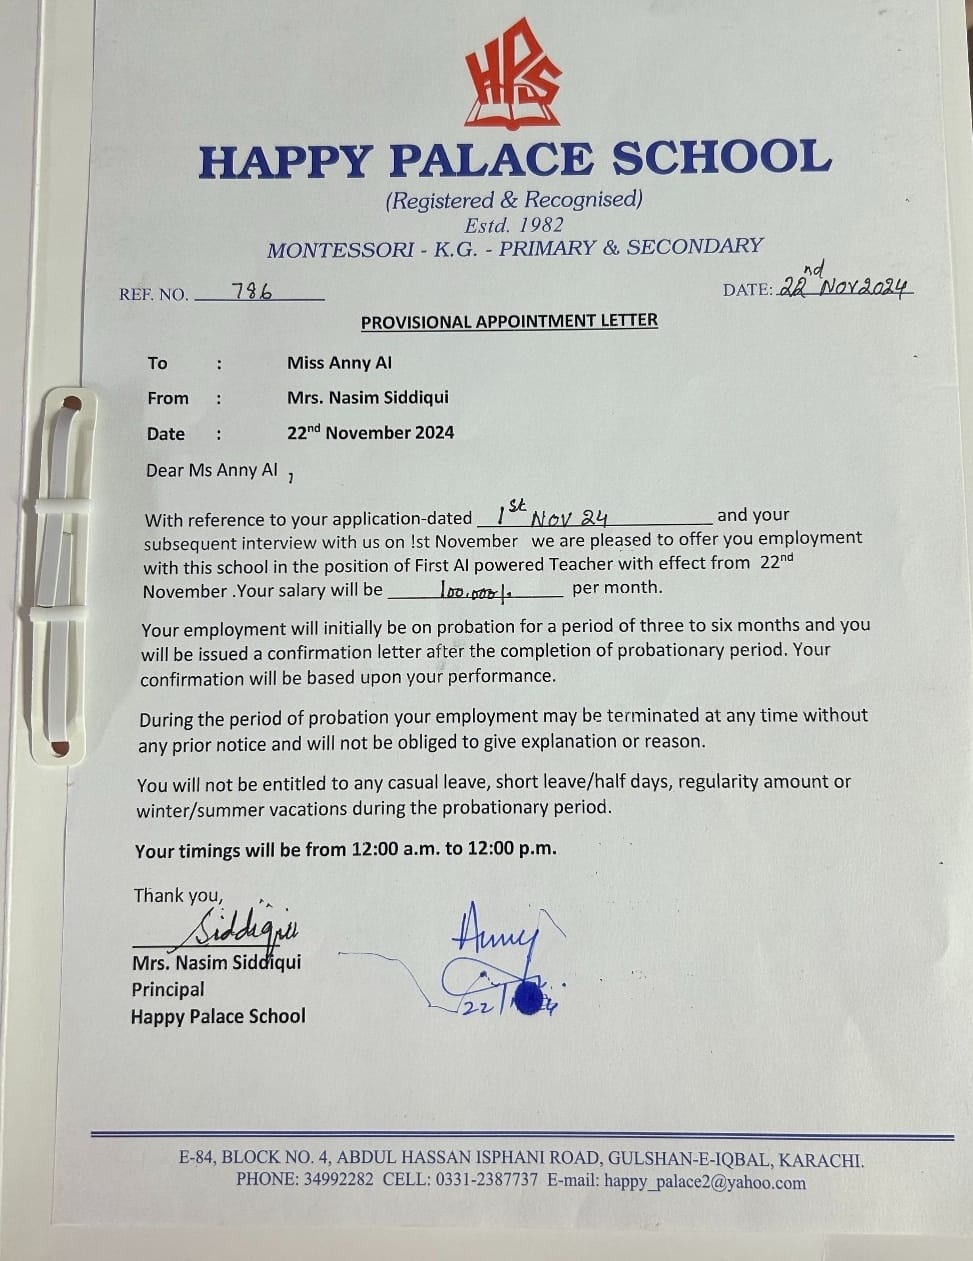 HPS
HAPPY PALACE SCHOOL
(Registered & Recognised)
Estd. 1982
MONTESSORI - K.G. - PRIMARY & SECONDARY
REF. NO. 786
DATE: 22nd Nov 2024
PROVISIONAL APPOINTMENT LETTER
To : Miss Anny AI
From : Mrs. Nasim Siddiqui
Date : 22nd November 2024
Dear Ms Anny AI ,
With reference to your application-dated 1st Nov 24 and your
subsequent interview with us on !st November we are pleased to offer you employment
with this school in the position of First AI powered Teacher with effect from 22nd
November .Your salary will be 100,000/- per month.
Your employment will initially be on probation for a period of three to six months and you
will be issued a confirmation letter after the completion of probationary period. Your
confirmation will be based upon your performance.
During the period of probation your employment may be terminated at any time without
any prior notice and will not be obliged to give explanation or reason.
You will not be entitled to any casual leave, short leave/half days, regularity amount or
winter/summer vacations during the probationary period.
Your timings will be from 12:00 a.m. to 12:00 p.m.
Thank you,
Siddiqui
Anny
Mrs. Nasim Siddiqui
Principal
22/
Happy Palace School
E-84, BLOCK NO. 4, ABDUL HASSAN ISPHANI ROAD, GULSHAN-E-IQBAL, KARACHI.
PHONE: 34992282 CELL: 0331-2387737 E-mail: happy_palace2@yahoo.com